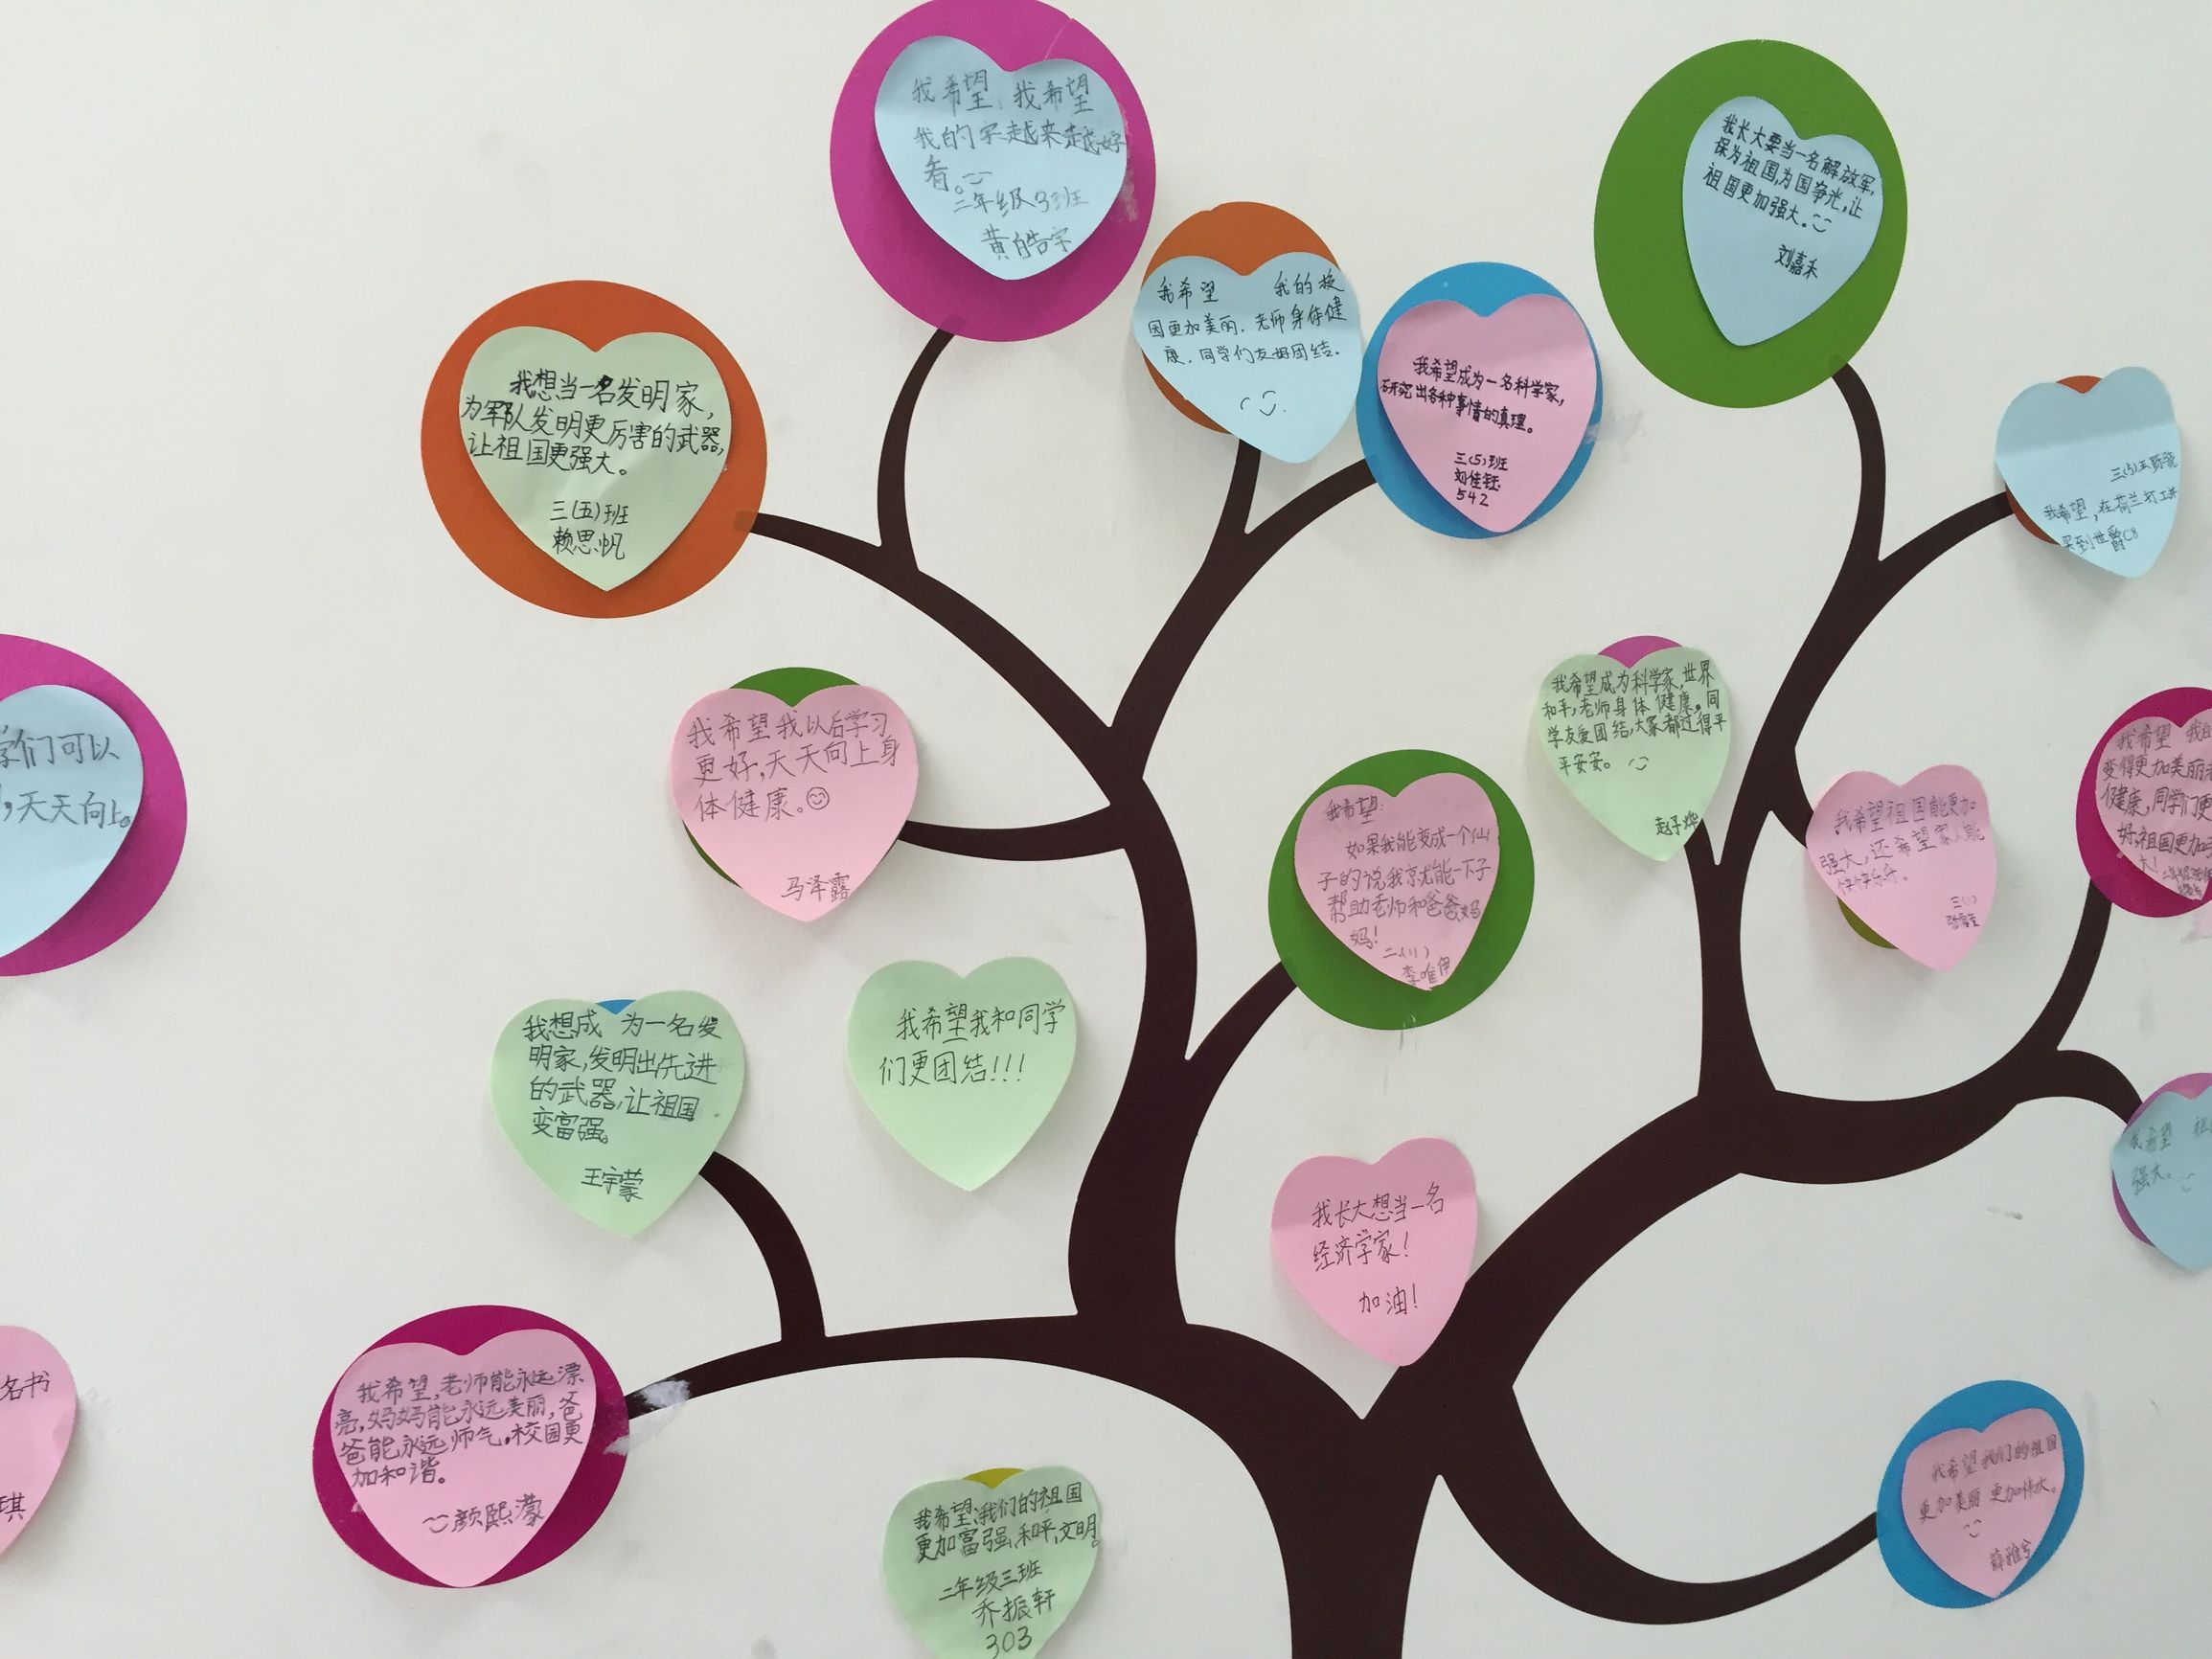 我希望：我希望
我的字越来越好
看。
二年级3班
我长大要当一名解放军,
保为祖国,为国争光,让
祖国更加强大。
刘嘉禾
我希望 我的校
园更加美丽.老师身体健
康.同学们友好团结.
我希望成为一名科学家,
研究出各种事情的真理。
三(5)班
刘佳钰
542
我想当一名发明家,
为军队发明更厉害的武器,
让祖国更强大。
三(五)班
赖思帆
我希望,在荷兰打工讲
学们可以
,天天向上。
我希望我以后学习
更好,天天向上身
体健康。
马泽露
我希望成为科学家,世界
和平,老师身体健康。同
学友爱团结,大家都过得平
平安安。
赵子烨
我希望:
如果我能变成一个仙
子的说我京尤能一下子
帮助老师和爸爸妈
妈!
二(1)
李唯伊
我希望祖国能更加
强大,还希望家人能
快快乐乐。
三(1)
我希望 我的
变得更加美丽
健康,同学们更
好祖国更加
大!
我想成 为一名发
明家,发明出先进
的武器,让祖国
变富强。
王宇蒙
我希望我和同学
们更团结!!!
我长大想当一名
经济学家!
加油!
我希望 祖
强大。
名书
琪
我希望,老师能永远漂
亮,妈妈能永远美丽,爸
爸能永远师气,校园更
加和谐。
颜熙濛
我希望:我们的祖国
更加富强,和平,文明。
二年级三班
乔振轩
303
我希望我们的祖国
更加美丽 更加伟大。
薛雅兮